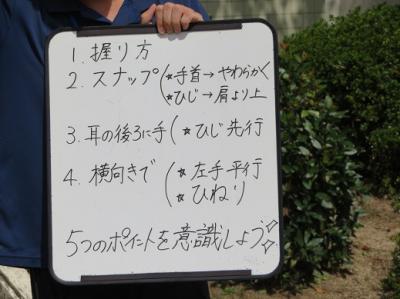 1. 握り方
2. スナップ(★手首→やわらかく
★ひじ→肩より上
3. 耳の後ろに手(★ひじ先行
4. 横向きで(★左手平行
★ひねり
5つのポイントを意識しよう☆☆